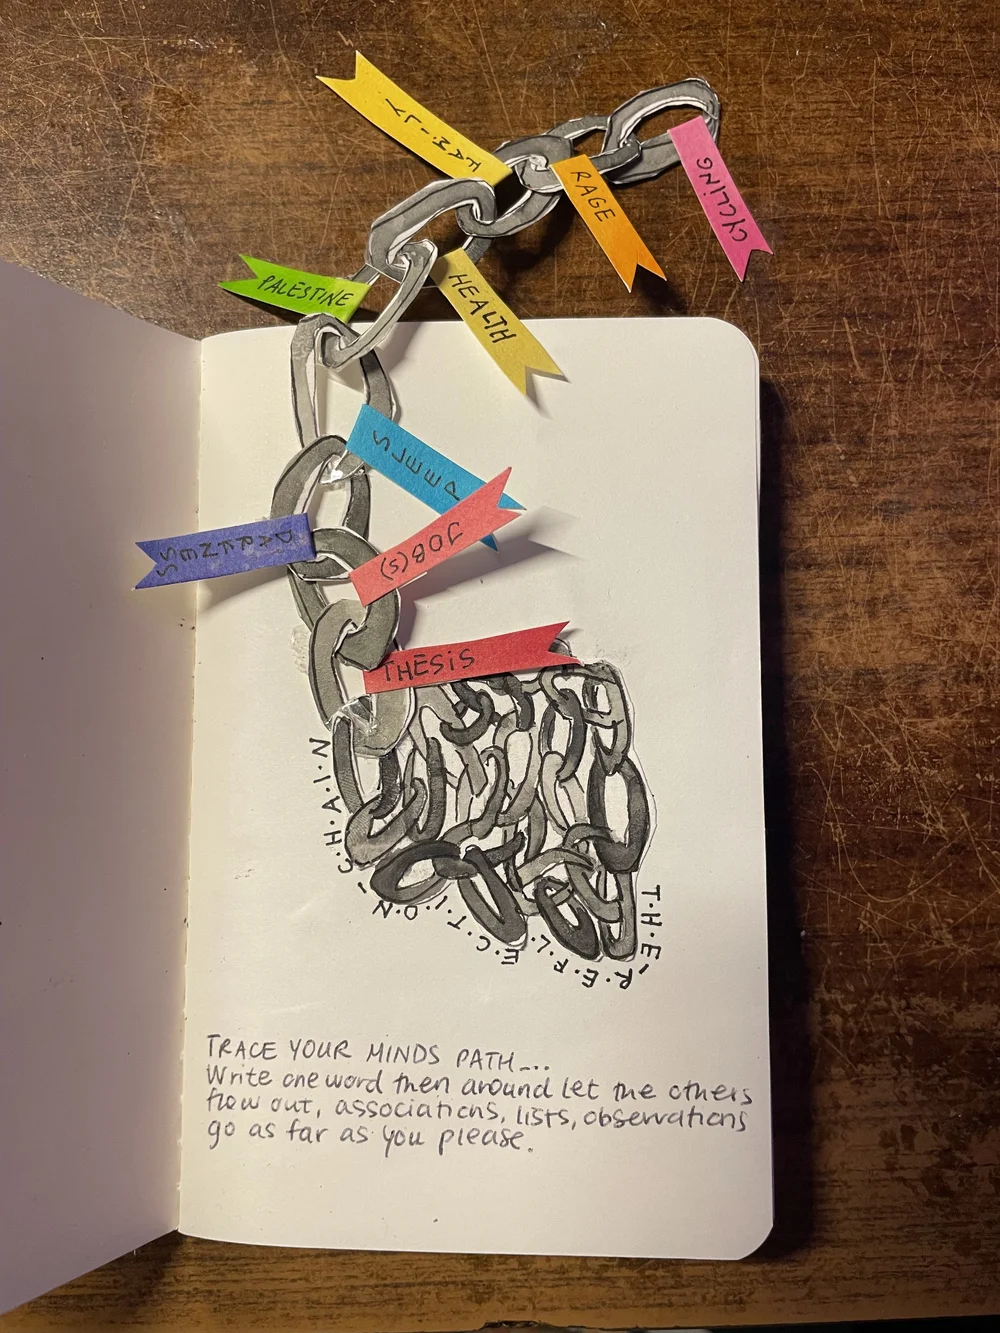 FAMILY
CYCLING
RAGE
PALESTINE
HEALTH
SLEEP
JOB(S)
DARKNESS
THESiS
T·H·E-R·E·F·L·E·C·T·I·O·N-C·H·A·I·N
TRACE YOUR MINDS PATH...
Write one word then around let the others
flow out, associations, lists, observations
go as far as you please.